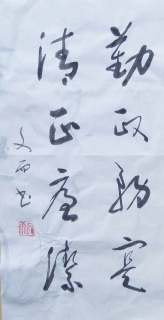 勤政務實
清正廉潔
文而書